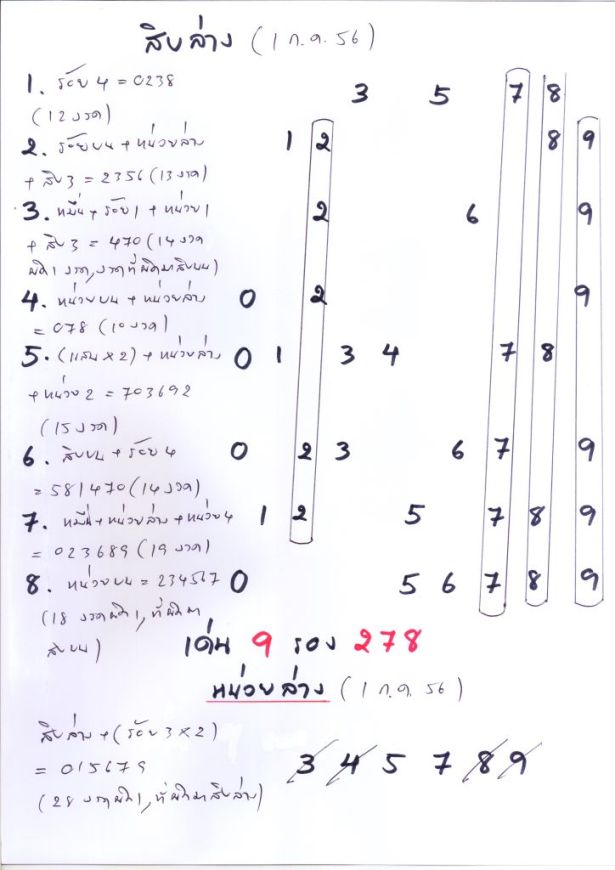 สิบล่าง (1 ก.ค. 56)
1. ร้อย 4 = 0238 3 5 7 8
(12 งวด)
2. ร้อยบน + หน่วยล่าง 1 2 8 9
+ สิบ 3 = 2356 (13 งวด)
3. หมื่น + ร้อย 1 + หน่วย 1 2 6 9
+ สิบ 3 = 470 (14 งวด
ผิด 1 งวด, งวดที่ผิดมาสิบบน)
4. หน่วยบน + หน่วยล่าง 0 2 9
= 078 (10 งวด)
5. (แสน x 2) + หน่วยล่าง 0 1 3 4 7 8
+ หน่วย 2 = 703692
(15 งวด)
6. สิบบน + ร้อย 4 0 2 3 6 7 9
= 581470 (14 งวด)
7. หมื่น + หน่วยล่าง + หน่วย 4 1 2 5 7 8 9
= 023689 (19 งวด)
8. หน่วยบน = 234567 0 5 6 7 8 9
(18 งวดผิด 1, ที่ผิดมา
สิบบน)
เด่น 9 รอง 278
หน่วยล่าง (1 ก.ค. 56)
สิบล่าง + (ร้อย 3 x 2)
= 015679 3 4 5 7 8 9
(28 งวดผิด 1, ที่ผิดมาสิบล่าง)